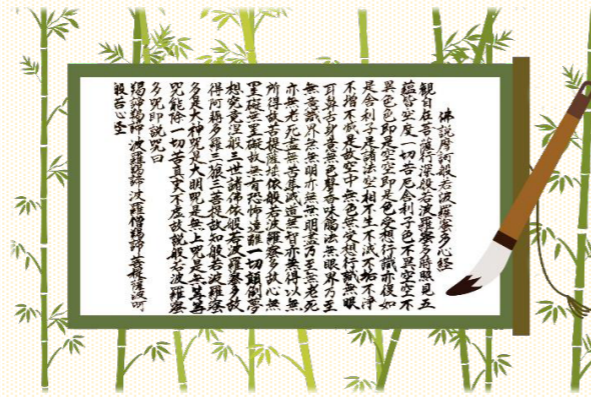 佛說摩訶般若波羅蜜多心經
観自在菩薩行深般若波羅蜜多時照見五
蘊皆空度一切苦厄舍利子色不異空空不
異色色即是空空即是色受想行識亦復如
是舍利子是諸法空相不生不滅不垢不淨
不增不減是故空中無色無受想行識無眼
耳鼻舌身意無色聲香味觸法無眼界乃至
無意識界無無明亦無無明盡乃至無老死
亦無老死盡無苦集滅道無智亦無得以無
所得故菩提薩埵依般若波羅蜜多故心無
罣礙無罣礙故無有恐怖遠離一切顛倒夢
想究竟涅槃三世諸佛依般若波羅蜜多故
得阿耨多羅三藐三菩提故知般若波羅蜜
多是大神咒是大明咒是無上咒是無等等
咒能除一切苦真実不虛故説般若波羅蜜
多咒即説咒曰
羯諦羯諦 波羅羯諦 波羅僧羯諦 菩提薩婆訶
般若心経